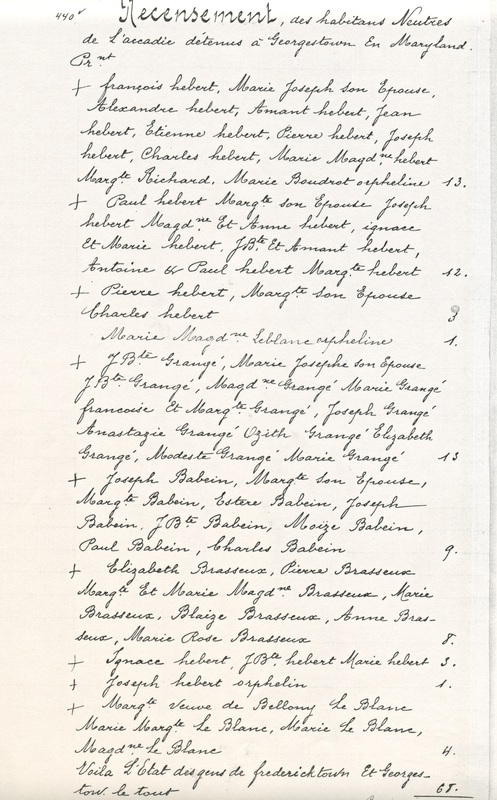 440v Recensement, des habitans Neutres
de L'accadie détenus à Georgestown En Maryland.
Pr nt
+ françois hebert, Marie Joseph son Epouse,
Alexandre hebert, Amant hebert, Jean
hebert, Etienne hebert, Pierre hebert, Joseph
hebert, Charles hebert, Marie Magdne hebert
Margte Richard, Marie Boudrot orpheline 13.
+ Paul hebert Margte son Epouse Joseph
hebert Magdne Et Anne hebert, ignace
Et Marie hebert, JBte Et Amant hebert,
Antoine & Paul hebert Margte hebert 12.
+ Pierre hebert, Margte son Epouse
Charles hebert 3
Marie Magdne Leblanc orpheline 1.
+ JBte Grangé, Marie Josephe son Epouse
JBte Grangé, Magdne Grangé Marie Grangé
francoise Et Margte Grangé, Joseph Grangé
Anastazie Grangé Ozith Grangé Elizabeth
Grangé, Modeste Grangé Marie Grangé 13
+ Joseph Babein, Margte son Epouse,
Margte Babein, Estere Babein, Joseph
Babein, JBte Babein, Moize Babein,
Paul Babein, Charles Babein 9.
+ Elizabeth Brasseux, Pierre Brasseux
Margte Et Marie Magdne Brasseux, Marie
Brasseux, Blaize Brasseux, Anne Bras-
seux, Marie Rose Brasseux 8.
+ Ignace hebert, JBte hebert Marie hebert 3.
+ Joseph hebert orphelin 1.
+ Margte veuve de Bellony Le Blanc
Marie Margte Le Blanc, Marie Le Blanc,
Magdne Le Blanc 4.
Voila L'Etat des gens de fredericktown Et Georges-
tow. le tout 68.